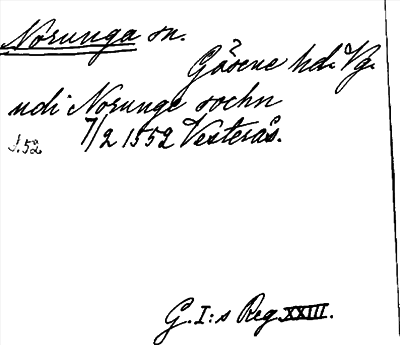 Norunga sn.
Gäsene hd. Vg.
udi Norunge sochn
s. 52 7/2 1552 Vesterås.
G. I:s Reg. XXIII.